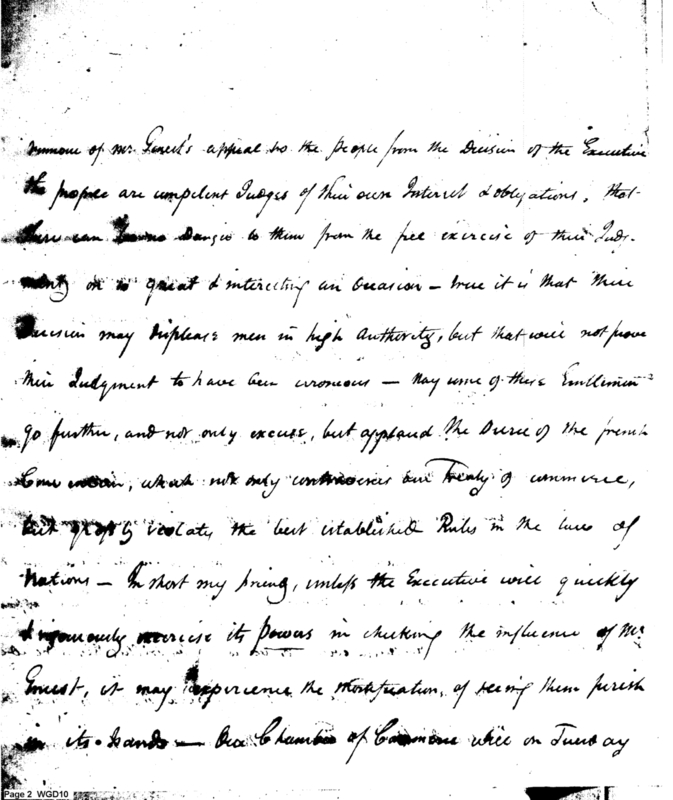 rumour of Mr. Genet's appeal to the People from the Decision of the Executive
the people are competent Judges of their own Interest & obligations, that
there can be no Danger to them from the free exercise of their Judg-
ments on so great & interesting an Occasion — true it is that their
Decision may displease men in high Authority, but that will not prove
their Judgment to have been erroneous — Nay some of these Gentlemen
go further, and not only excuse, but applaud the Decree of the french
Convention, which not only contravenes our Treaty of commerce,
but grossly violates the best established Rules in the laws of
Nations — In short my friend, unless the Executive will quickly
& vigorously exercise its Powers in checking the influence of Mr
Genet, it may experience the Mortification, of seeing them perish
in its Hands — Our Chamber of Commerce will on Tuesday
Page 2 WGD10